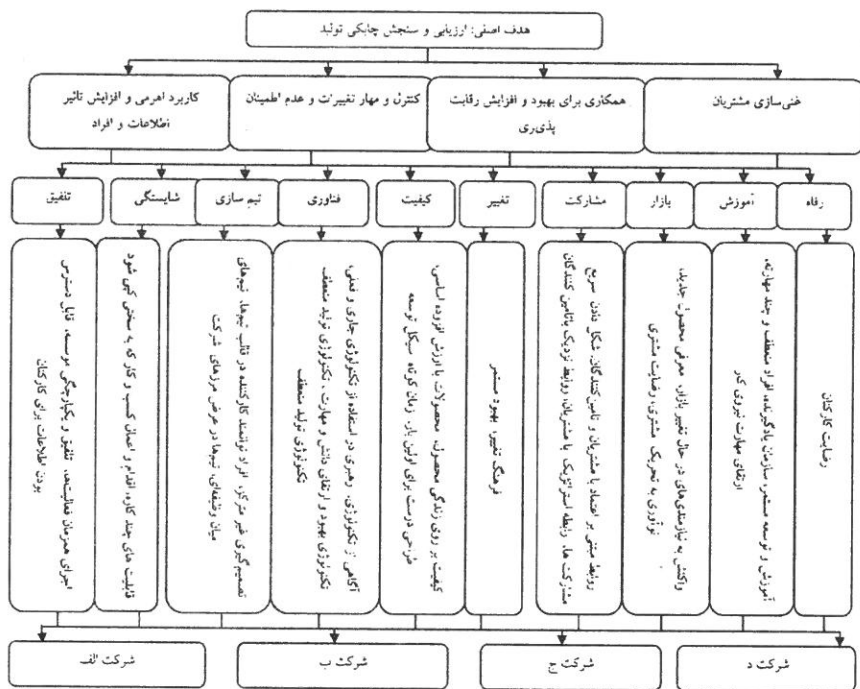 هدف اصلی: ارزیابی و سنجش چابکی تولید
غنی‌سازی مشتریان
همکاری برای بهبود و افزایش رقابت
پذیری
کنترل و مهار تغییرات و عدم اطمینان
کاربرد اهرمی و افزایش تاثیر
اطلاعات و افراد
رفاه
آموزش
بازار
مشارکت
تغییر
کیفیت
فناوری
تیم سازی
شایستگی
تلفیق
رضایت کارکنان
آموزش و توسعه مستمر، سازمان یادگیرنده، افراد منعطف و چند مهارته،
ارتقای مهارت نیروی کار
واکنش به نیازمندی‌های در حال تغییر بازار، معرفی محصولات جدید،
نوآوری به تحریک مشتری، رضایت مشتری
روابط مبتنی بر اعتماد با مشتریان و تامین‌کنندگان، شکل دادن سریع
مشارکت ها، رابطه استراتژیک با مشتریان، روابط نزدیک با تامین کنندگان
فرهنگ تغییر، بهبود مستمر
کیفیت بر روی زندگی محصول، محصولات با ارزش افزوده اساسی،
طراحی درست برای اولین بار، زمان کوتاه سیکل توسعه
آگاهی از تکنولوژی، رهبری در استفاده از تکنولوژی جاری و فعلی،
تکنولوژی بهبود و ارتقای دانش و مهارت، تکنولوژی تولید منعطف
تکنولوژی تولید منعطف
تصمیم‌گیری غیر متمرکز، افراد توانمند کارکننده در قالب تیم‌ها، تیم‌های
میان وظیفه‌ای، تیم‌ها در عرض مرزهای شرکت
قابلیت های چند کاره، اقدام و اعمال کسب و کار که به سختی کپی شود
اجرای همزمان فعالیت‌ها، تلفیق و یکپارچگی موسسه، قابل دسترس
بودن اطلاعات برای کارکنان
شرکت د
شرکت ج
شرکت ب
شرکت الف